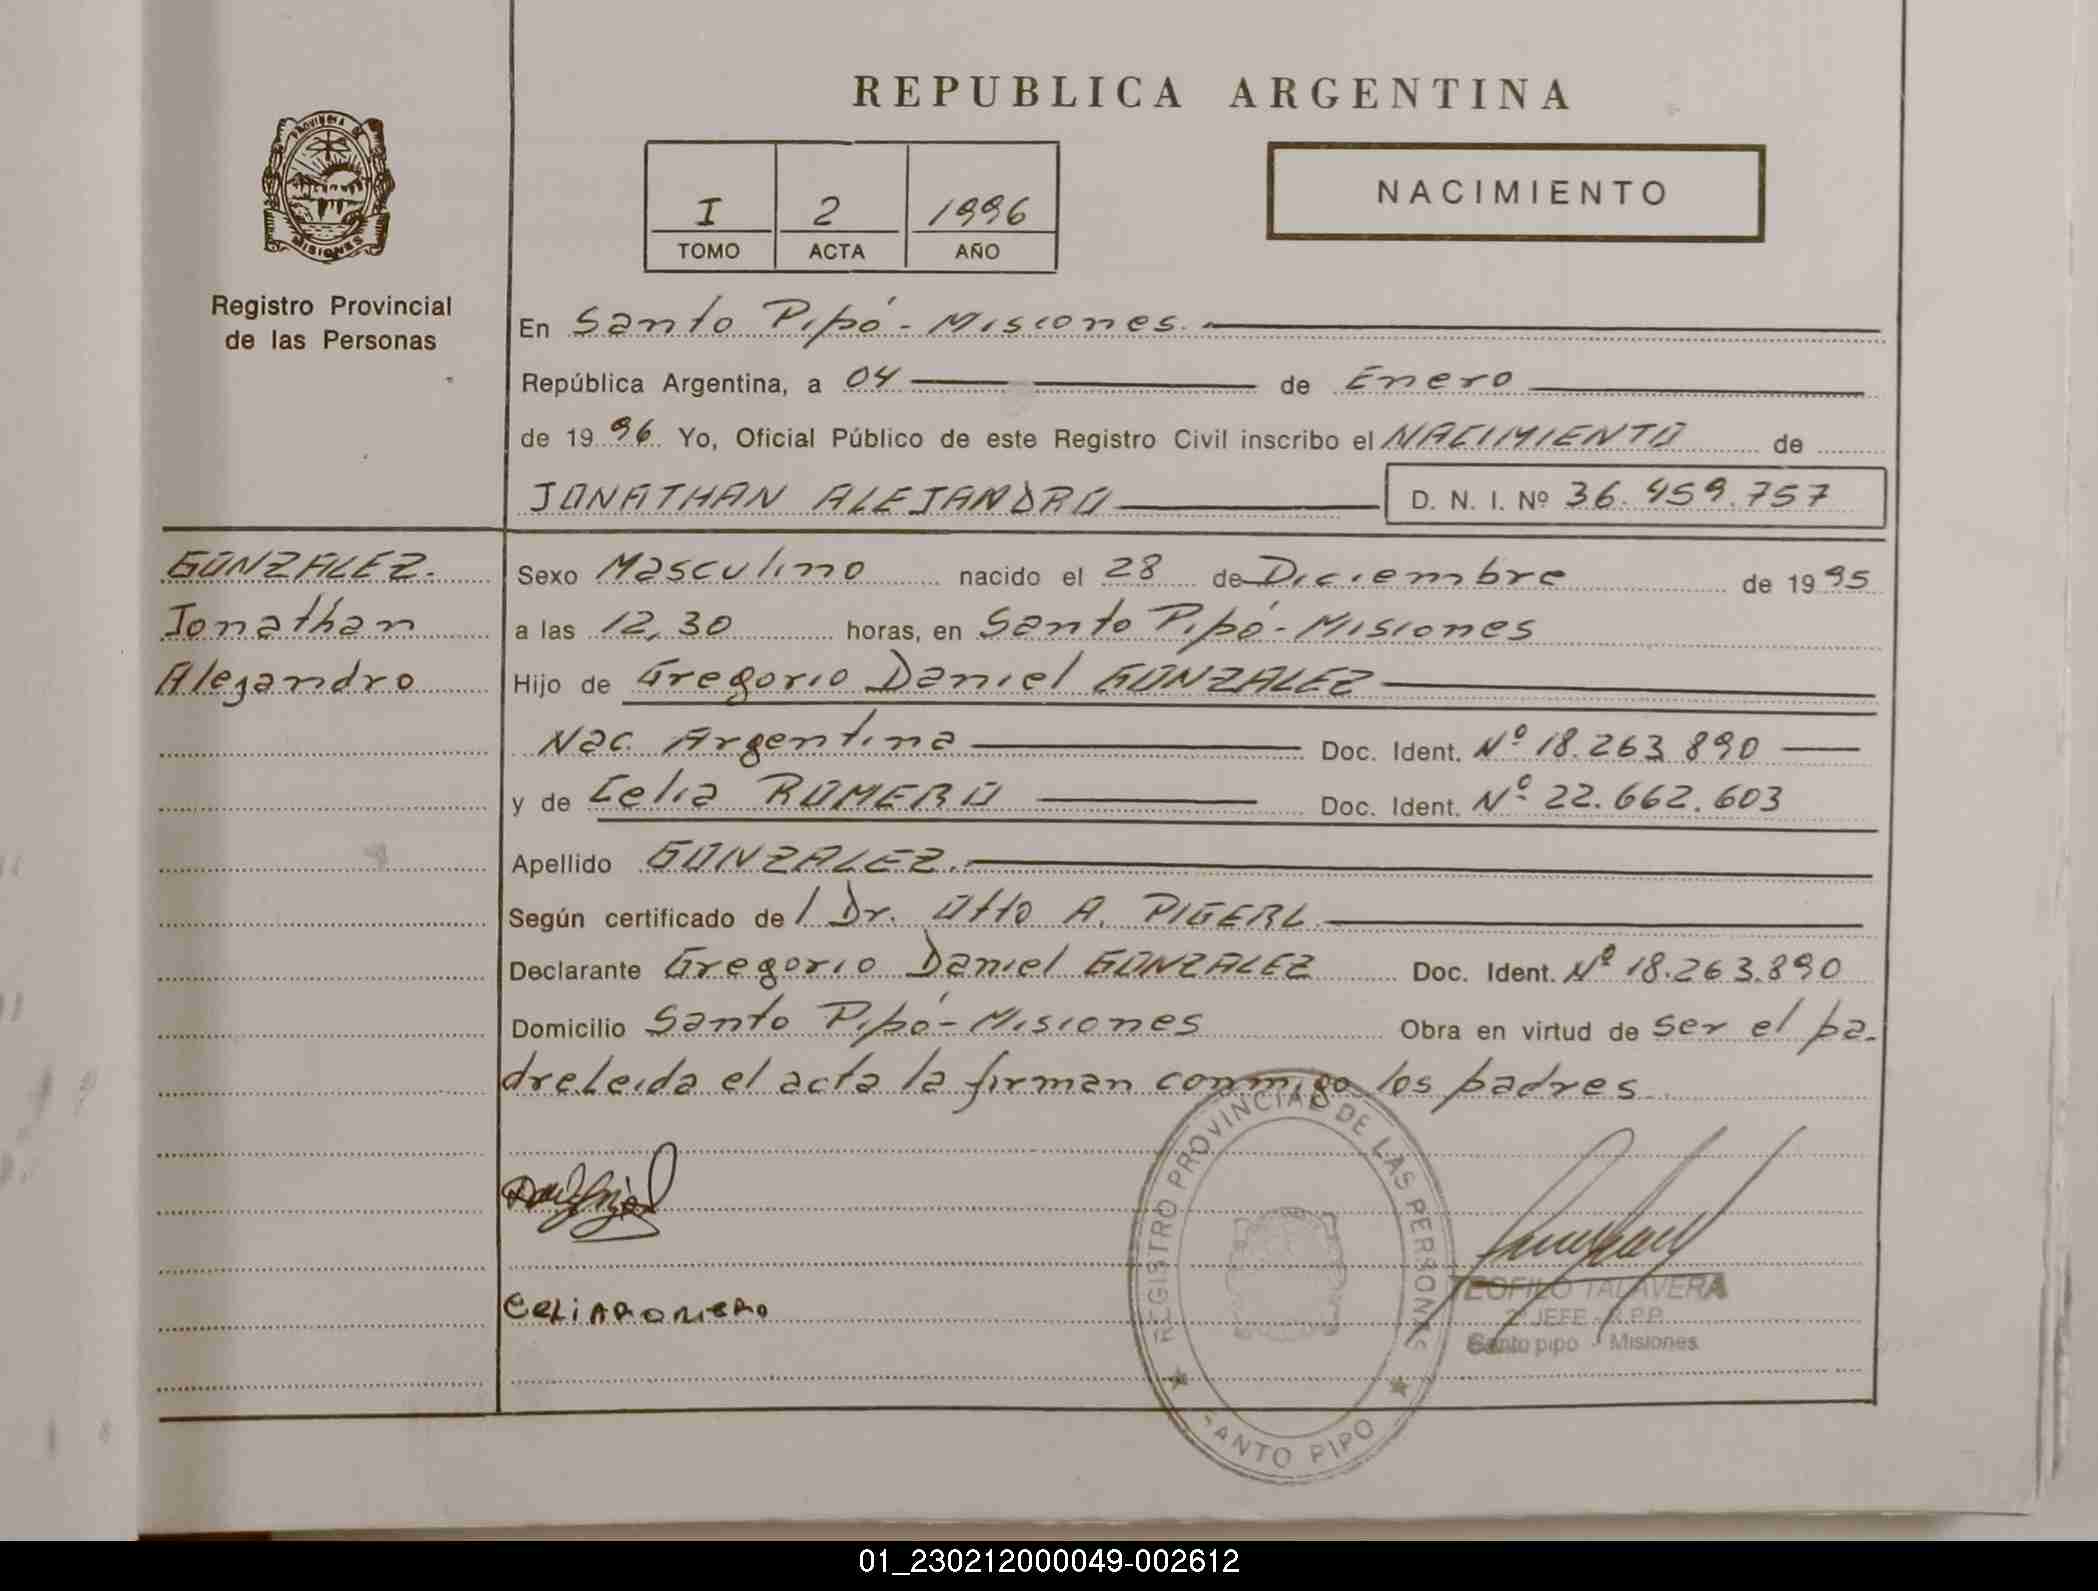 REPUBLICA ARGENTINA
PROVINCIA DE
MISIONES
Registro Provincial
de las Personas
I 2 1996
TOMO ACTA AÑO
NACIMIENTO
En Santo Pipó - Misiones.
República Argentina, a 04 de Enero
de 1996 Yo, Oficial Público de este Registro Civil inscribo el NACIMIENTO de
JONATHAN ALEJANDRO D. N. I. Nº 36.459.757
GONZALEZ.
Jonathan
Alejandro
Sexo Masculino nacido el 28 de Diciembre de 1995
a las 12,30 horas, en Santo Pipó - Misiones
Hijo de Gregorio Daniel GONZALEZ
Nac. Argentina Doc. Ident. Nº 18.263.890
y de Celia ROMERO Doc. Ident. Nº 22.662.603
Apellido GONZALEZ.
Según certificado de / Dr. Otto A. PIGERL
Declarante Gregorio Daniel GONZALEZ Doc. Ident. Nº 18.263.890
Domicilio Santo Pipó - Misiones Obra en virtud de ser el pa-
dre Leida el acta la firman conmigo los padres.
CELIA ROMERO
REGISTRO PROVINCIAL DE LAS PERSONAS
SANTO PIPO
TEOFILO TALAVERA
2º JEFE - R.P.P.
Santo pipo - Misiones
01_230212000049-002612